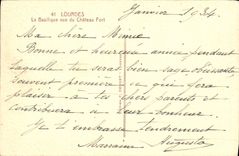 41 LOURDES
La Basilique vue du Château Fort
Janvier 1934.
Ma chère Mimie
Bonne et heureuse année pendant
laquelle tu seras bien sage obéissante
souvent première ce que fera
plaisir à tes chers parents et
contribuera à leur bonheur.
Je t'embrasse tendrement
Marraine Augusta